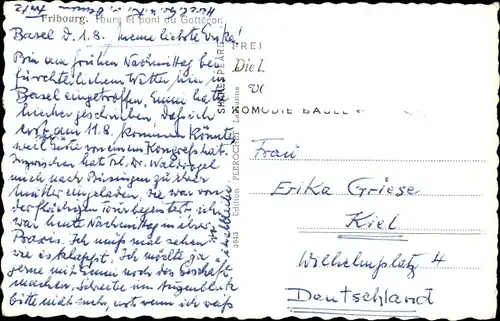 Fribourg. Tours et pont du Gottéron
Basel d. 1.8. Meine liebste Erika!
Bin am frühen Nachmittag bei
fürchterlichem Wetter hier in
Basel eingetroffen, Emmi hatte
hierher geschrieben, daß ich
erst am 11.8. kommen könnte
weil Gäste von einem Kongreß hat.
Inzwischen hat Frl. Dr.
mich nach Büsingen zu ihrer
Mutter eingeladen, die war von
der Tour begeistert. ich
war heute Nachmittag in ihrer
Praxis. Ich muß mal sehen
wie es klappt. Ich möchte ja
gerne mit Emmi noch das Geschäft
machen. Schreibe im Augenblick
bitte nicht mehr, erst wenn ich weiß
SHAKESPEARE
FREI
Die
KOMÖDIE BASEL
3643 Edition PERROCHET Lausanne
Frau
Erika Griese
Kiel
Wilhelmplatz 4
Deutschland